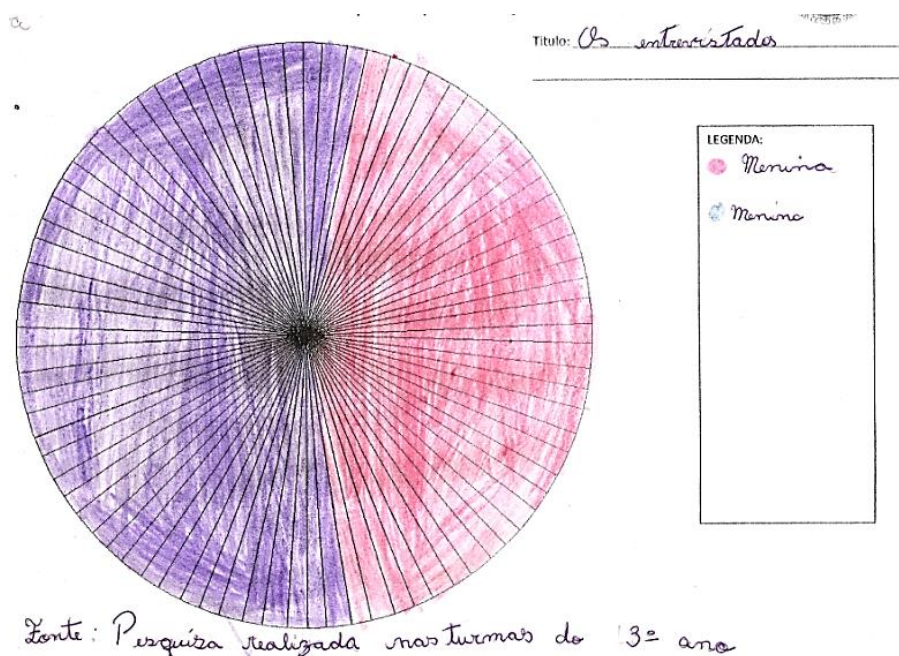 Título: Os entrevistados
LEGENDA:
Menina
Menino
Fonte: Pesquisa realizada nas turmas do 3º ano